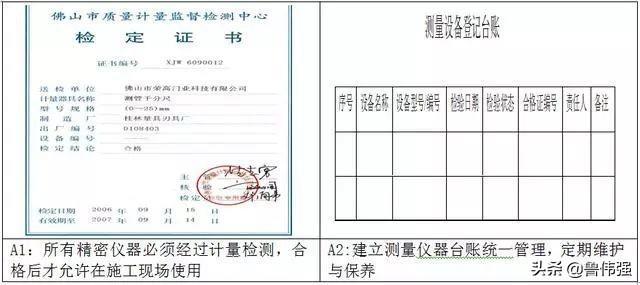 佛山市质量计量监督检测中心
检定证书
证书编号 XJW 6090012
送检单位 佛山市荣高门业科技有限公司
计量器具名称 测管千分尺
型号规格 (0—25)mm
制造厂 桂林量具刃具厂
出厂编号 D108403
设备编号
检定结论 合格
主
核验
检定日期 2006 年 09 月 15 日
有效期至 2007 年 09 月 14 日
测量设备登记台账
序号 设备名称 设备型号/编号 检验日期 检验状态 合格证编号 责任人 备注
A1: 所有精密仪器必须经过计量检测，合
格后才允许在施工现场使用
A2:建立测量仪器台账统一管理，定期维护
与保养
头条 @鲁伟强